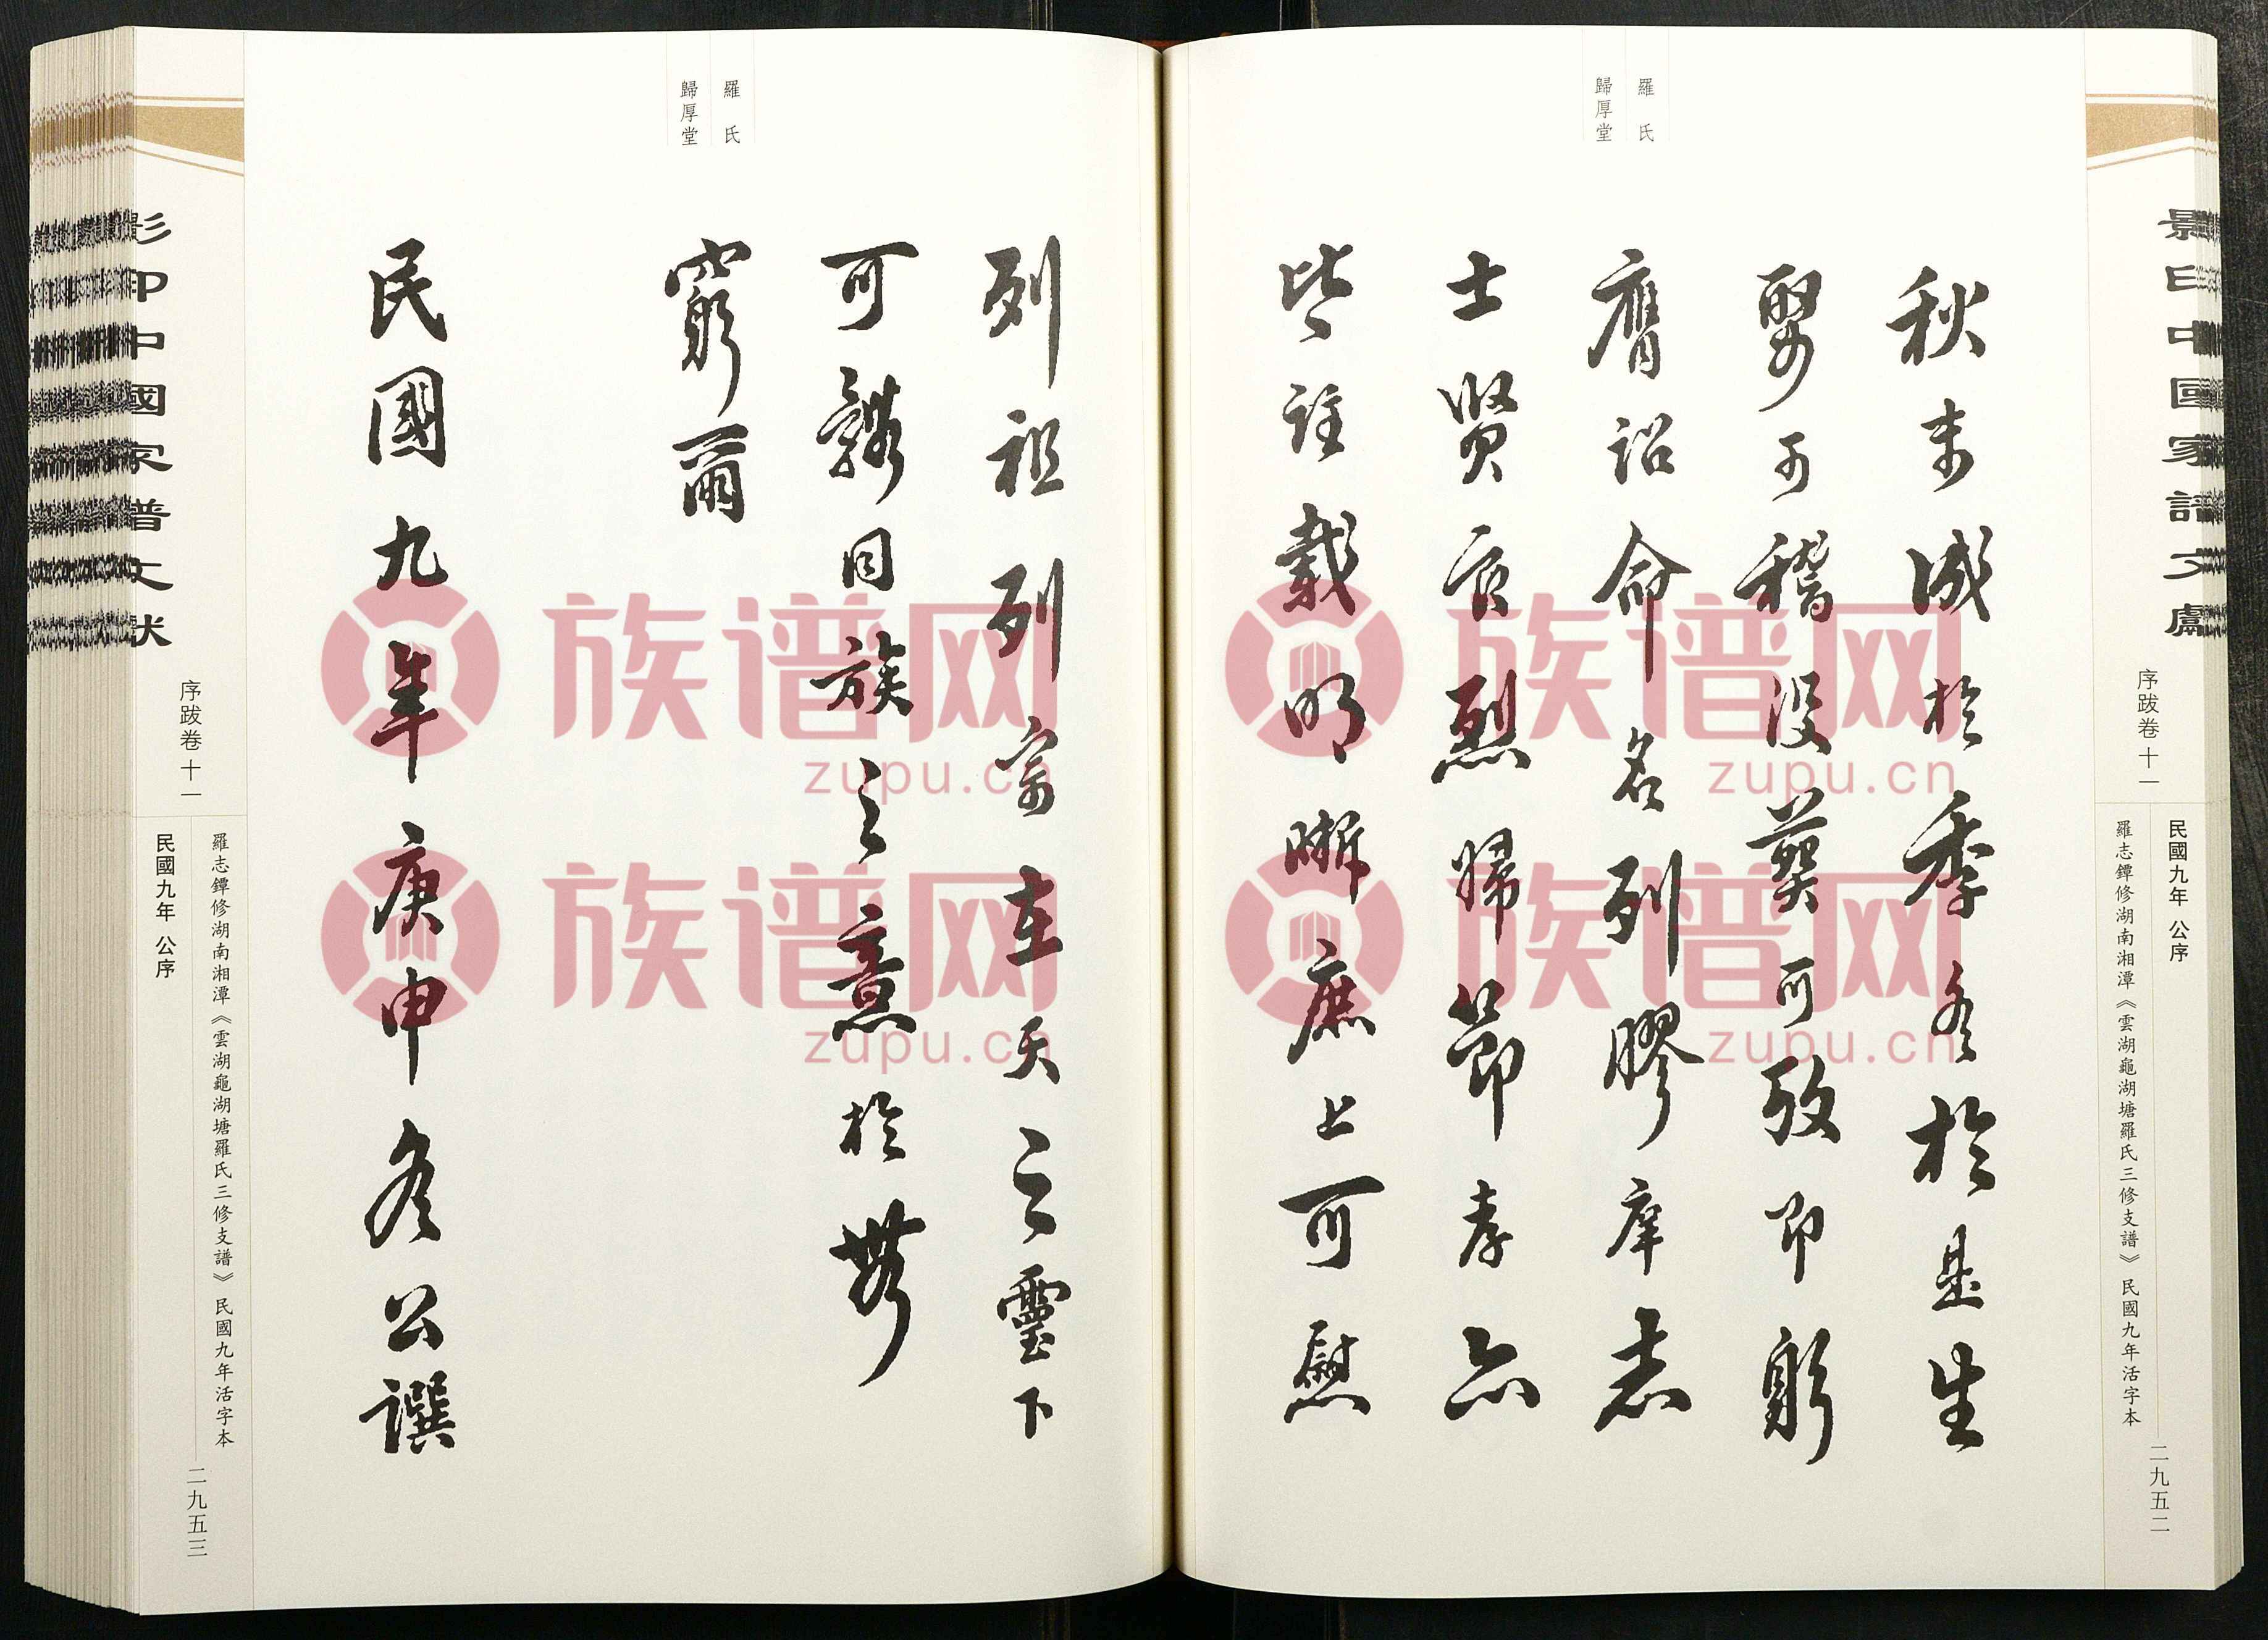 羅氏
歸厚堂
秋未成於季冬於是生
娶可稽沒葬可攷即躬
膺詔命名列膠庠志
士賢官烈婦節孝亦
皆註載明晰庶上可慰
序跋卷十一
民國九年 公序
羅志鐔修湖南湘潭《雲湖龜湖塘羅氏三修支譜》民國九年活字本
二九五二
羅氏
歸厚堂
列祖列宗在天之靈下
可繫同族之意於無
窮爾
民國九年庚申冬公譔
影印中國家譜文獻
序跋卷十一
民國九年 公序
羅志鐔修湖南湘潭《雲湖龜湖塘羅氏三修支譜》民國九年活字本
二九五三
族谱网
zupu.cn
族谱网
zupu.cn
族谱网
zupu.cn
族谱网
zupu.cn